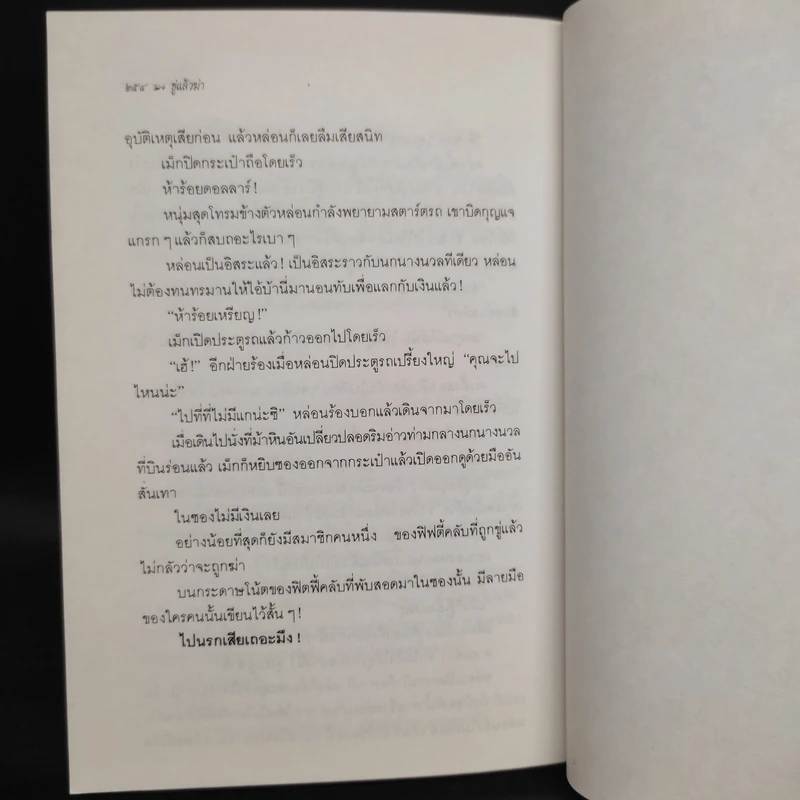 ๒๕๔ ขู่แล้วฆ่า
อุบัติเหตุเสียก่อน แล้วหล่อนก็เลยลืมเสียสนิท
เม็กปิดกระเป๋าถือโดยเร็ว
ห้าร้อยดอลลาร์!
หนุ่มสุดโทรมข้างตัวหล่อนกำลังพยายามสตาร์ตรถ เขาบิดกุญแจ
แกรก ๆ แล้วก็สบถอะไรเบา ๆ
หล่อนเป็นอิสระแล้ว! เป็นอิสระราวกับนกนางนวลทีเดียว หล่อน
ไม่ต้องทนทรมานให้ไอ้บ้านี่มานอนทับเพื่อแลกกับเงินแล้ว!
“ห้าร้อยเหรียญ!”
เม็กเปิดประตูรถแล้วก้าวออกไปโดยเร็ว
“เฮ้!” อีกฝ่ายร้องเมื่อหล่อนปิดประตูรถเปรี้ยงใหญ่ “คุณจะไป
ไหนน่ะ”
“ไปที่ที่ไม่มีแกน่ะซิ” หล่อนร้องบอกแล้วเดินจากมาโดยเร็ว
เมื่อเดินไปนั่งที่ม้าหินอันเปลี่ยวปลอดริมอ่าวท่ามกลางนกนางนวล
ที่บินร่อนแล้ว เม็กก็หยิบซองออกจากกระเป๋าแล้วเปิดออกดูด้วยมืออัน
สั่นเทา
ในซองไม่มีเงินเลย
อย่างน้อยที่สุดก็ยังมีสมาชิกคนหนึ่ง ของฟิฟตี้คลับที่ถูกขู่แล้ว
ไม่กลัวว่าจะถูกฆ่า
บนกระดาษโน้ตของฟิตฟี้คลับที่พับสอดมาในซองนั้น มีลายมือ
ของใครคนนั้นเขียนไว้สั้น ๆ!
ไปนรกเสียเถอะมึง!